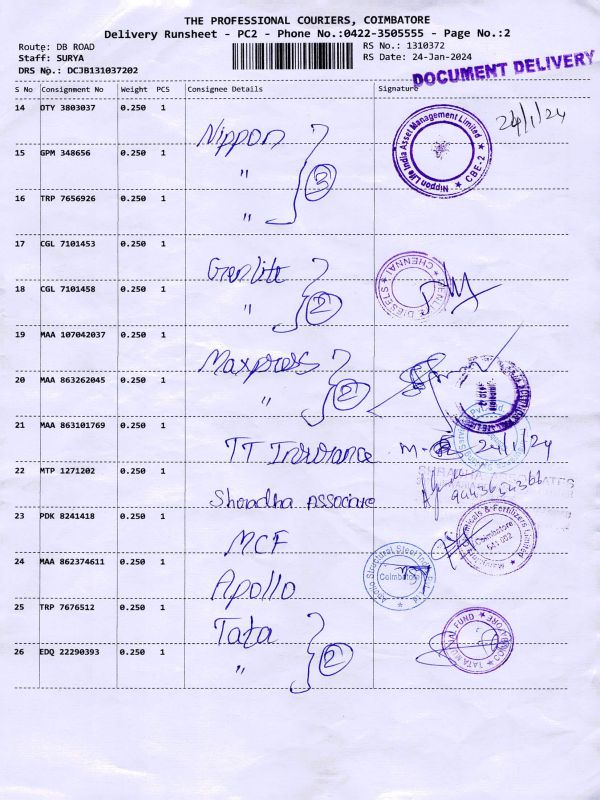 THE PROFESSIONAL COURIERS, COIMBATORE
Delivery Runsheet - PC2 - Phone No.:0422-3505555 - Page No.:2
Route: DB ROAD
RS No.: 1310372
Staff: SURYA
RS Date: 24-Jan-2024
DRS No.: DCJB131037202
DOCUMENT DELIVERY
S No Consignment No Weight PCS Consignee Details Signature
14 OTY 3803037 0.250 1 Nippon
24/1/24
Nippon Life India Asset Management Limited CBE-2
15 GPM 348656 0.250 1 "
3
16 TRP 7656926 0.250 1 "
17 CGL 7101453 0.250 1 Greenlite
CHENNAI DIESELS
18 CGL 7101458 0.250 1 " 2
19 MAA 107042037 0.250 1 Maxpress
20 MAA 863262045 0.250 1 " 2
21 MAA 863101769 0.250 1 TT Insurance 24/1/24
22 MTP 1271202 0.250 1 Sharadha Associate
23 PDK 8241418 0.250 1 MCF
Chemicals & Fertilizers Limited
Coimbatore
641 002
24 MAA 862374611 0.250 1 Apollo
Structural Steel
Coimbatore
25 TRP 7676512 0.250 1 Tata
TATA MUTUAL FUND COIMBATORE
26 EDQ 22290393 0.250 1 " 2